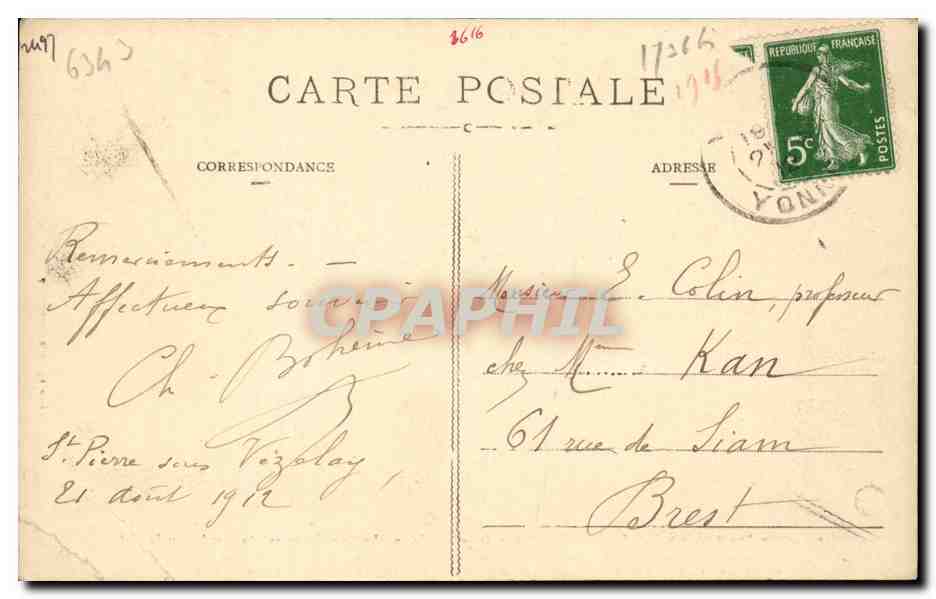 2497
6343
3616
1912
CARTE POSTALE
RÉPUBLIQUE FRANÇAISE
5c
POSTES
YONNE
CORRESPONDANCE
ADRESSE
Remerciements. —
Affectueux souvenir
Ch. Bohême
St Pierre sous Vézelay,
21 août 1912
Monsieur E. Colin, professeur
chez Mme Kan
61 rue de Siam
Brest
CPAPHIL